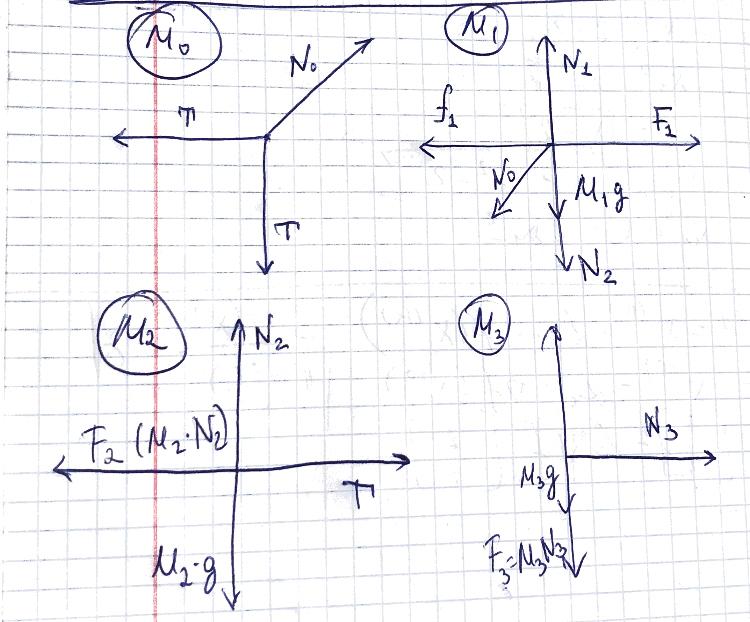 M₀
N₀
T
T
M₁
N₁
f₁
F₁
N₀
M₁g
N₂
M₂
N₂
F₂ (M₂·N₂)
T
M₂·g
M₃
N₃
M₃g
F₃=M₃N₃